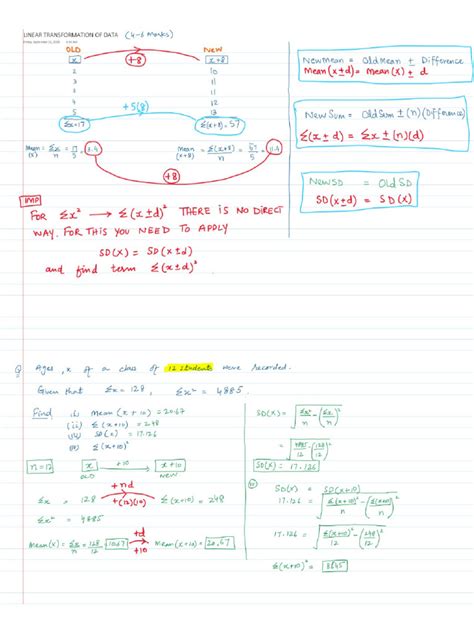 LINEAR TRANSFORMATION OF DATA (4-6 marks)
OLD NEW
x +8 x+8
2 10
3 11
3 11
4 12
5 +5(8) 13
Σx=17 Σ(x+8)=57
Mean (x) = Σx/n = 17/5 = 3.4
Mean (x+8) = Σ(x+8)/n = 57/5 = 11.4
+8
New Mean = Old Mean ± Difference
Mean(x±d) = Mean(x) ± d
New Sum = Old Sum ± (n)(Difference)
Σ(x±d) = Σx ± (n)(d)
New SD = Old SD
SD(x±d) = SD(x)
IMP
FOR Σx² → Σ(x±d)² THERE IS NO DIRECT
WAY. FOR THIS YOU NEED TO APPLY
SD(x) = SD(x±d)
and find term Σ(x±d)²
Q Ages, x of a class of 12 students were recorded.
Given that Σx = 128, Σx² = 4885.
Find (i) Mean (x+10) = 20.67
(ii) Σ(x+10) = 248
SD(x) = 17.126
Σ(x+10)²
n=12 x +10 x+10
OLD NEW
+nd
Σx = 128 +(12)(10) Σ(x+10) = 248
Σx² = 4885
Mean(x) = Σx/n = 128/12 = 10.67 +d +10 Mean(x+10) = 20.67
SD(x) = √(Σx²/n − (Σx/n)²)
= √(4885/12 − (128/12)²)
SD(x) = 17.126
SD(x) = SD(x+10)
17.126 = √(Σ(x+10)²/n − (Σ(x+10)/n)²)
17.126 = √(Σ(x+10)²/12 − (248/12)²)
Σ(x+10)² = 8645